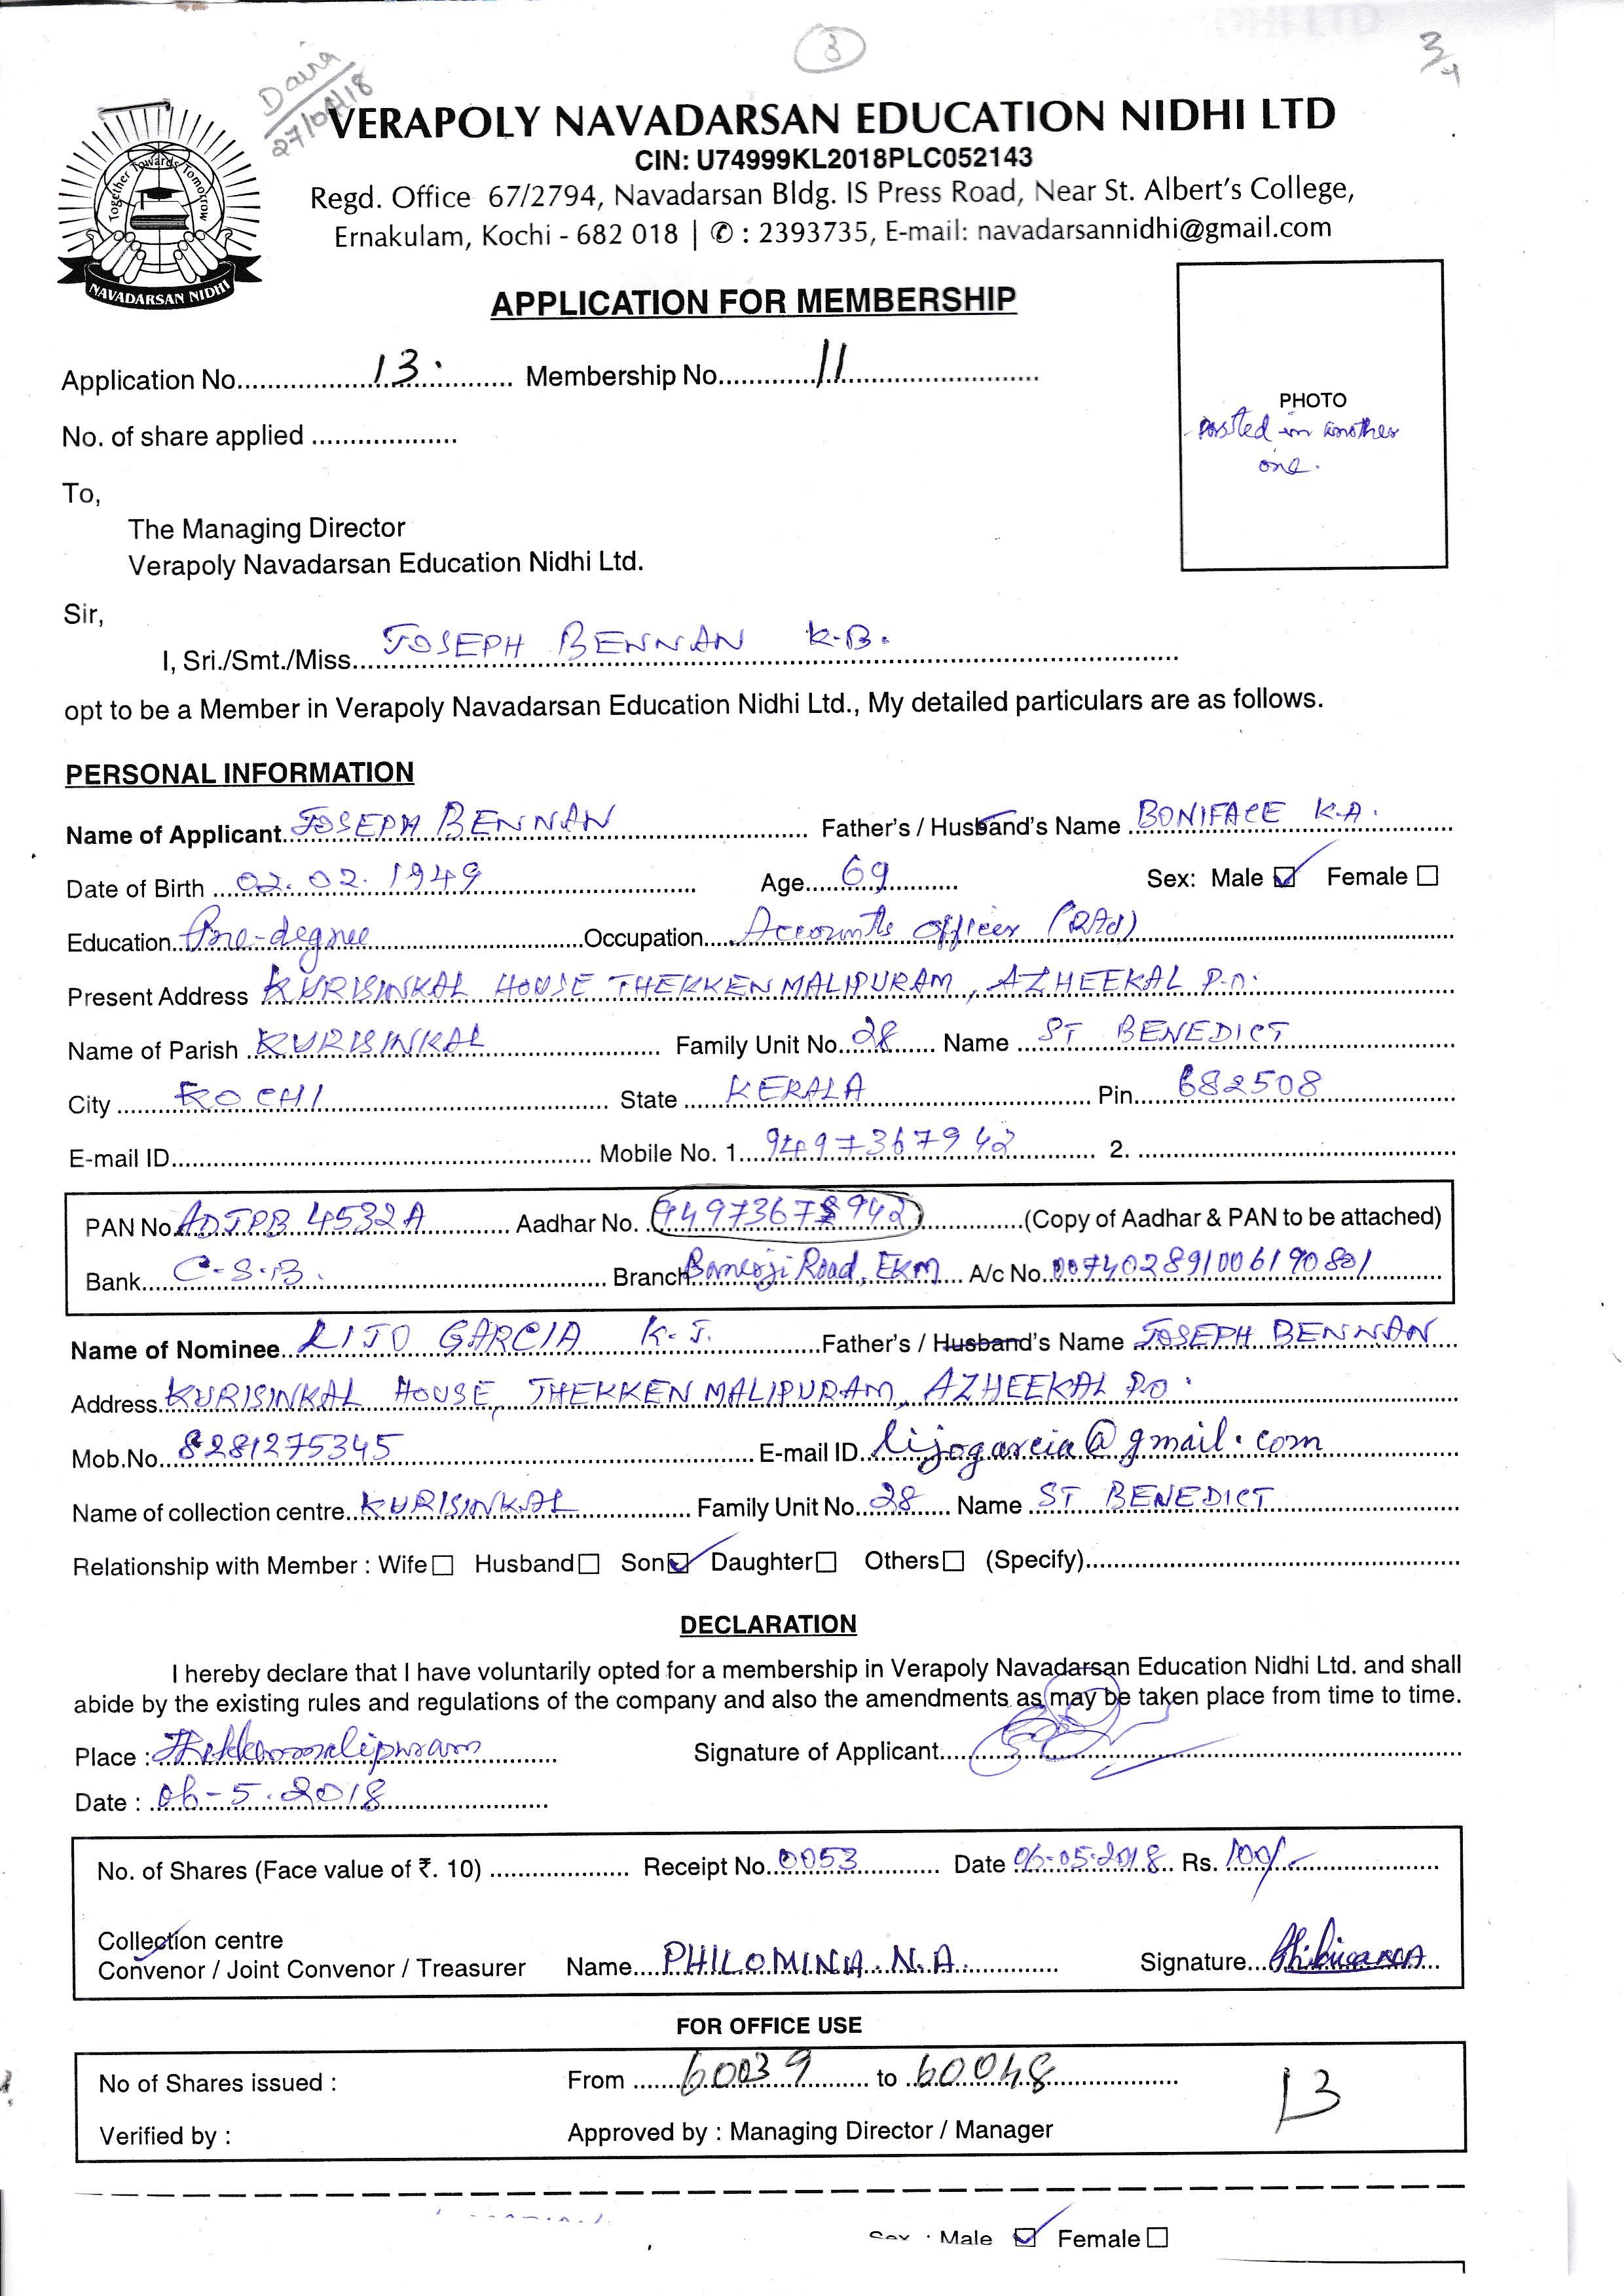 3
3
Daira
27/04/18
Together Towards Tomorrow
NAVADARSAN NIDHI
VERAPOLY NAVADARSAN EDUCATION NIDHI LTD
CIN: U74999KL2018PLC052143
Regd. Office 67/2794, Navadarsan Bldg. IS Press Road, Near St. Albert's College,
Ernakulam, Kochi - 682 018 | ✆ : 2393735, E-mail: navadarsannidhi@gmail.com
APPLICATION FOR MEMBERSHIP
Application No. 13. Membership No. 11
No. of share applied
PHOTO
Pasted in another
one.
To,
The Managing Director
Verapoly Navadarsan Education Nidhi Ltd.
Sir,
I, Sri./Smt./Miss. JOSEPH BENNAN K.B.
opt to be a Member in Verapoly Navadarsan Education Nidhi Ltd., My detailed particulars are as follows.
PERSONAL INFORMATION
Name of Applicant. JOSEPH BENNAN Father's / Husband's Name BONIFACE K.A.
Date of Birth 02.02.1949 Age 69 Sex: Male ☑ Female ☐
Education Pre-degree Occupation Accounts Officer (RAd)
Present Address KURISINKAL HOUSE THEKKEN MALIPURAM, AZHEEKAL P.O.
Name of Parish KURISINKAL Family Unit No. 28 Name ST BENEDICT
City KOCHI State KERALA Pin 682508
E-mail ID Mobile No. 1 9497367942 2.
PAN No. ADJPB 4532A Aadhar No. (Copy of Aadhar & PAN to be attached)
Bank C.S.B. Branch Banerji Road, EKM A/c No. 007402891006190801
Name of Nominee LIJO GARCIA K.J. Father's / Husband's Name JOSEPH BENNAN
Address KURISINKAL HOUSE, THEKKEN MALIPURAM, AZHEEKAL P.O.
Mob.No. 8281275345 E-mail ID lijogarcia@gmail.com
Name of collection centre KURISINKAL Family Unit No. 28 Name ST BENEDICT
Relationship with Member : Wife ☐ Husband ☐ Son ☑ Daughter ☐ Others ☐ (Specify)
DECLARATION
I hereby declare that I have voluntarily opted for a membership in Verapoly Navadarsan Education Nidhi Ltd. and shall
abide by the existing rules and regulations of the company and also the amendments as may be taken place from time to time.
Place : Thekkenmalipuram Signature of Applicant
Date : 06-5.2018
No. of Shares (Face value of ₹. 10) Receipt No. 0053 Date 06-05-2018 Rs. 100/-
Collection centre
Convenor / Joint Convenor / Treasurer Name PHILOMINA. N.A. Signature
FOR OFFICE USE
No of Shares issued : From 60039 to 60048 13
Verified by : Approved by : Managing Director / Manager
Sex : Male ☑ Female ☐